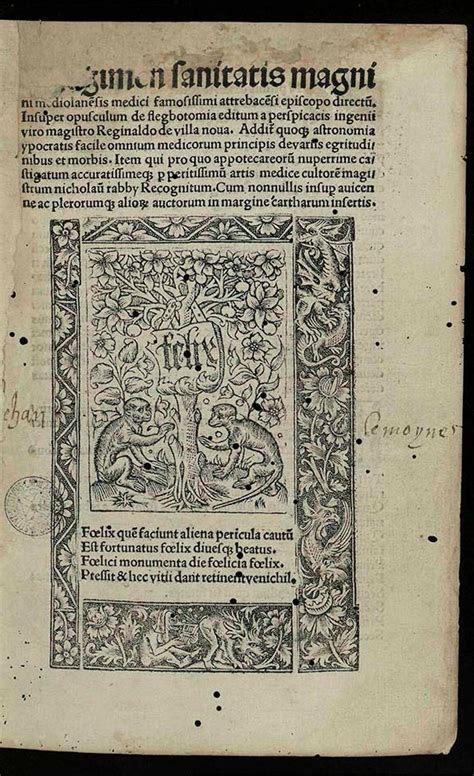 Regimen sanitatis magni
ni mediolanēsis medici famosissimi attrebacēsi episcopo directū.
Insuper opusculum de flegbotomia editum a perspicacis ingenii
viro magistro Reginaldo de villa noua. Addit̄ quoqꝫ astronomia
ypocratis facile omnium medicorum principis de variis egritudi
nibus et morbis. Item qui pro quo appotecareorū nuperrime ca
stigatum accuratissimeqꝫ p peritissimū artis medice cultorē magi
strum nicholaū rabby Recognitum. Cum nonnullis insup auicen
ne ac plerorumqꝫ alioꝝ auctorum in margine cartharum insertis.
felix
ehan
lemoyne
Fœlix quē faciunt aliena pericula cautū
Est fortunatus fœlix diuesqꝫ beatus.
Fœlici monumenta die fœlicia fœlix.
Pressit & hec vitii dant retinentve nichil.